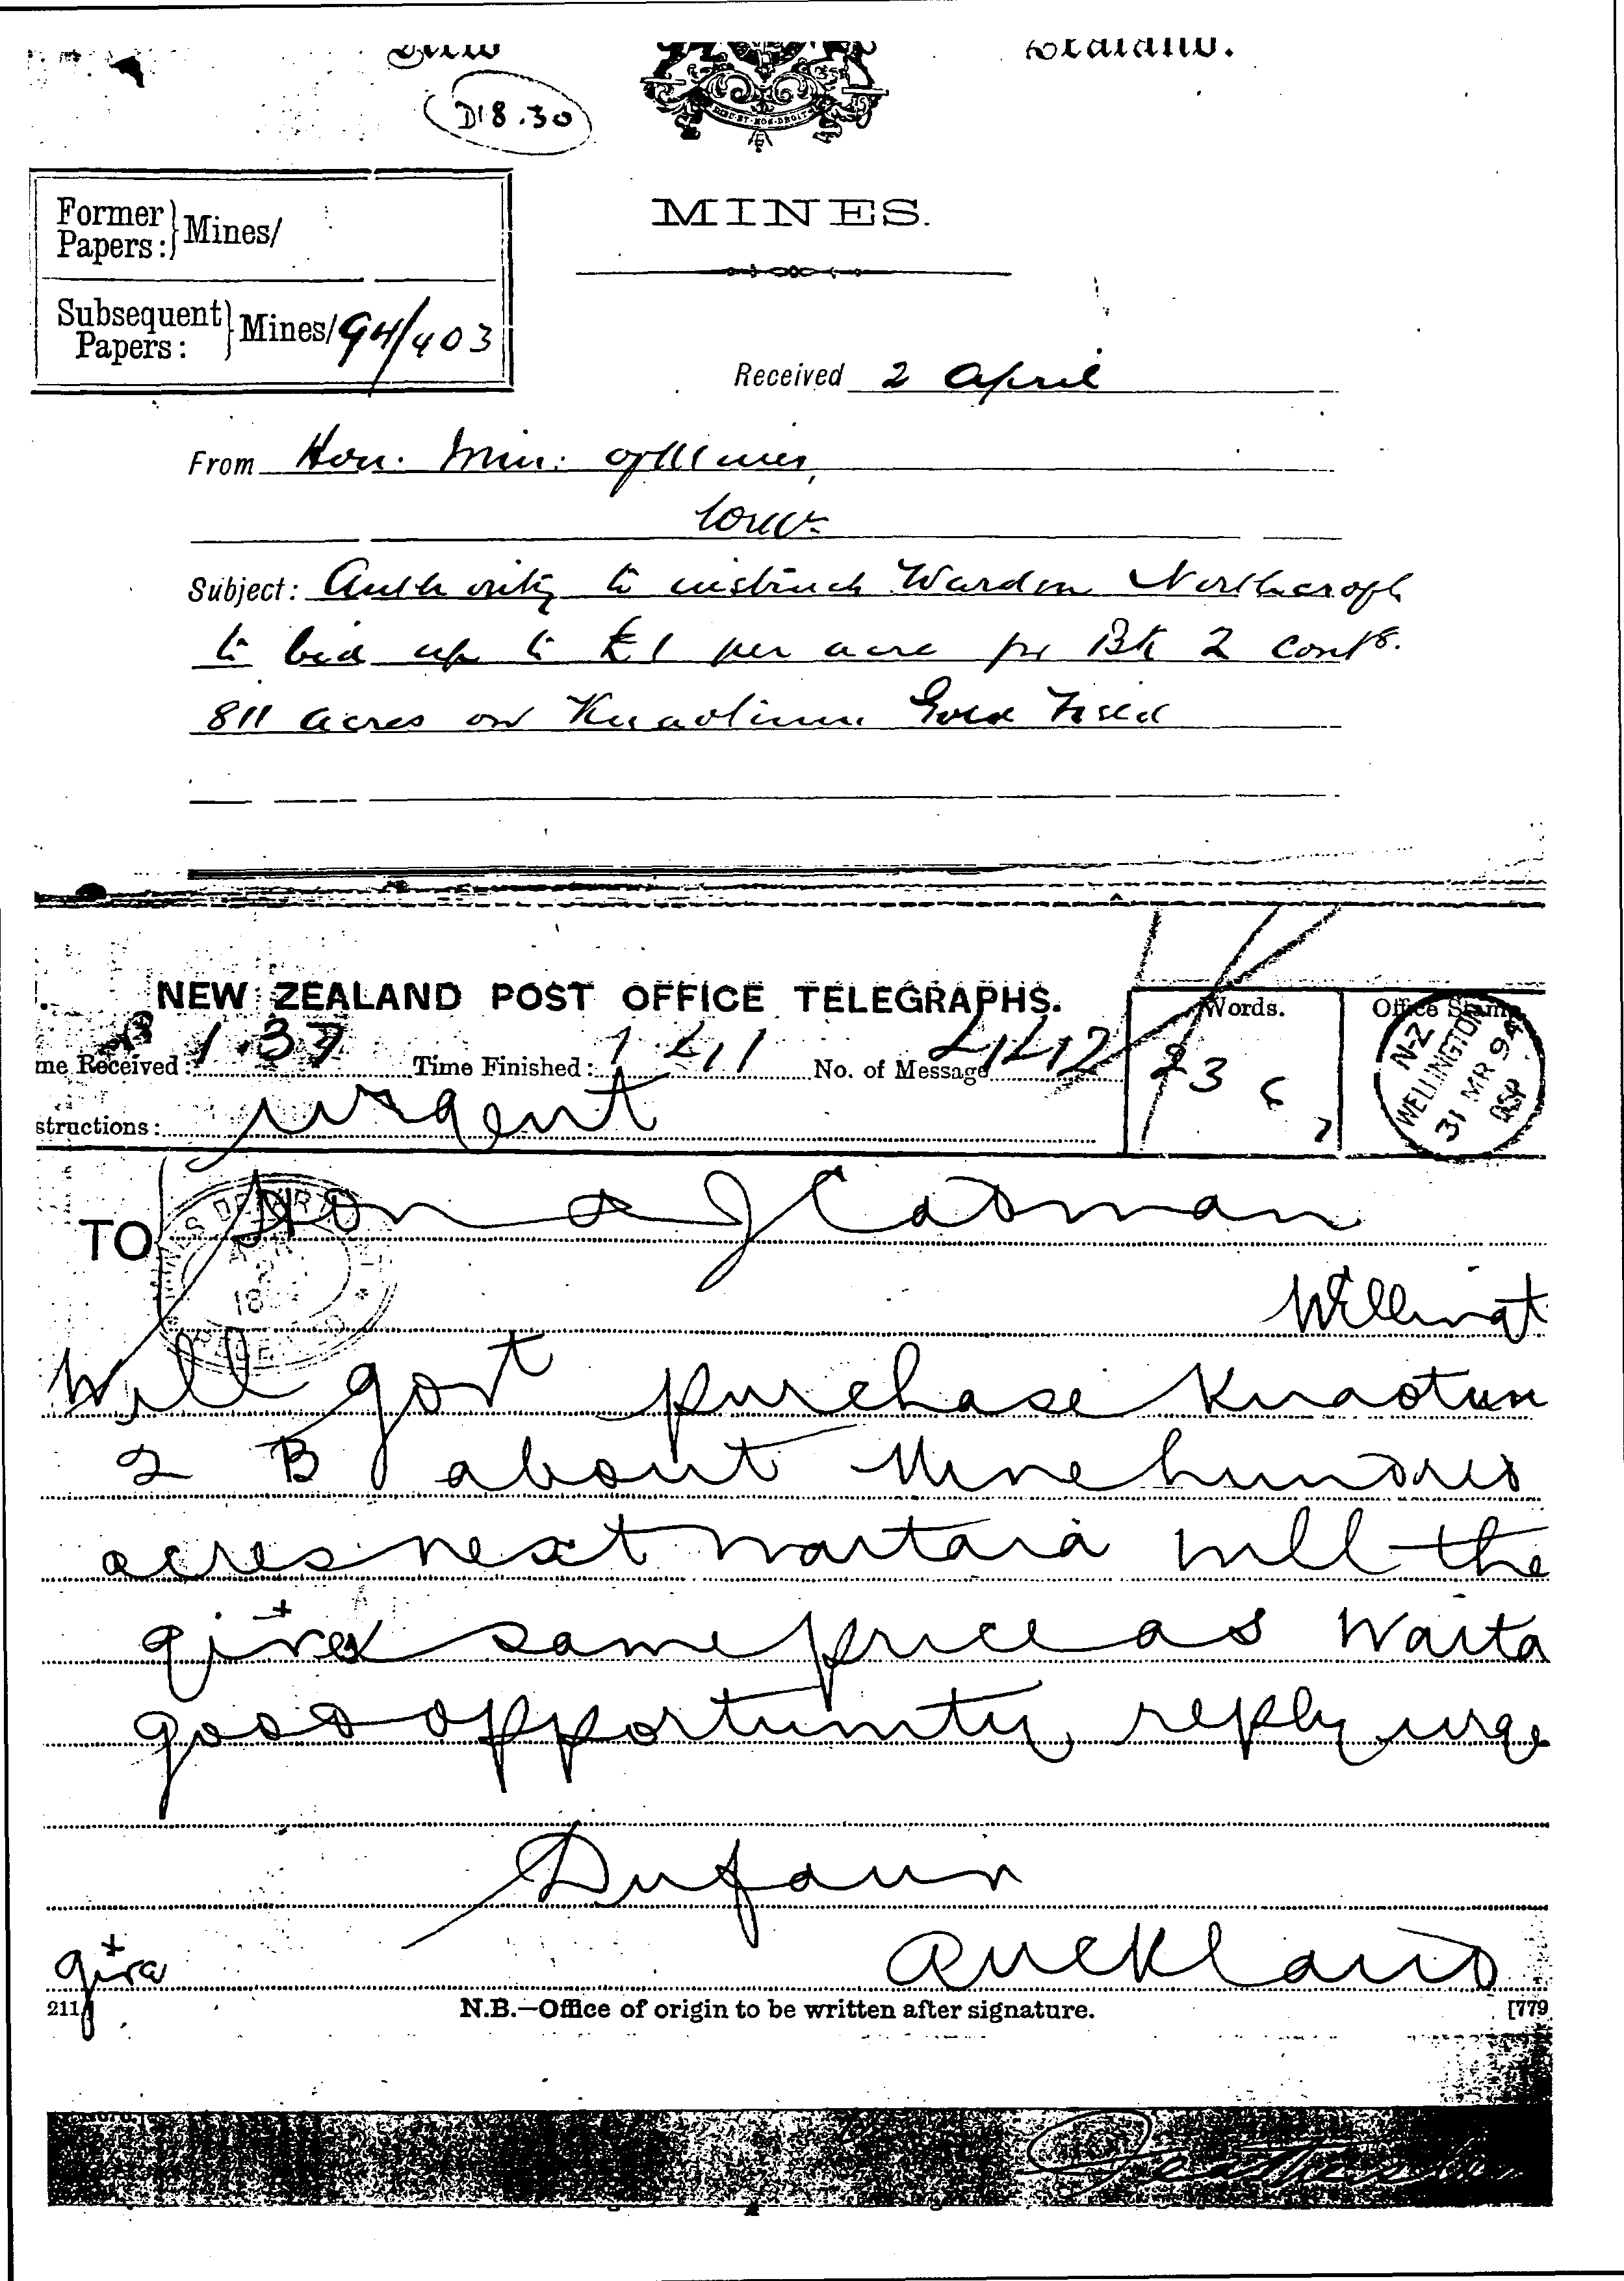 D18.30
DIEU·ET·MON·DROIT
MINES.
Former Papers: } Mines/
Subsequent Papers: } Mines/94/403
Received 2 April
From Hon. Min. of Mines,
Subject: Authority to instruct Warden Northcroft
to bid up to £1 per acre for Bk 2 contg.
811 acres on Kuaotunu Gold Field
NEW ZEALAND POST OFFICE TELEGRAPHS.
Words.
Office Stamp
me Received: 1.37 Time Finished: 1.41 No. of Message 4412
23 6
7
N-Z
WELLINGTON
31 MR 94
structions: urgent
TO Hon A J Cadman
Wellingt
Will govt purchase Kuaotun
2 B about Nine hundred
acres next Waitaia will the
give same price as Waita
good opportunity reply urge
Dufaur
Auckland
give
211
N.B.—Office of origin to be written after signature.
[779